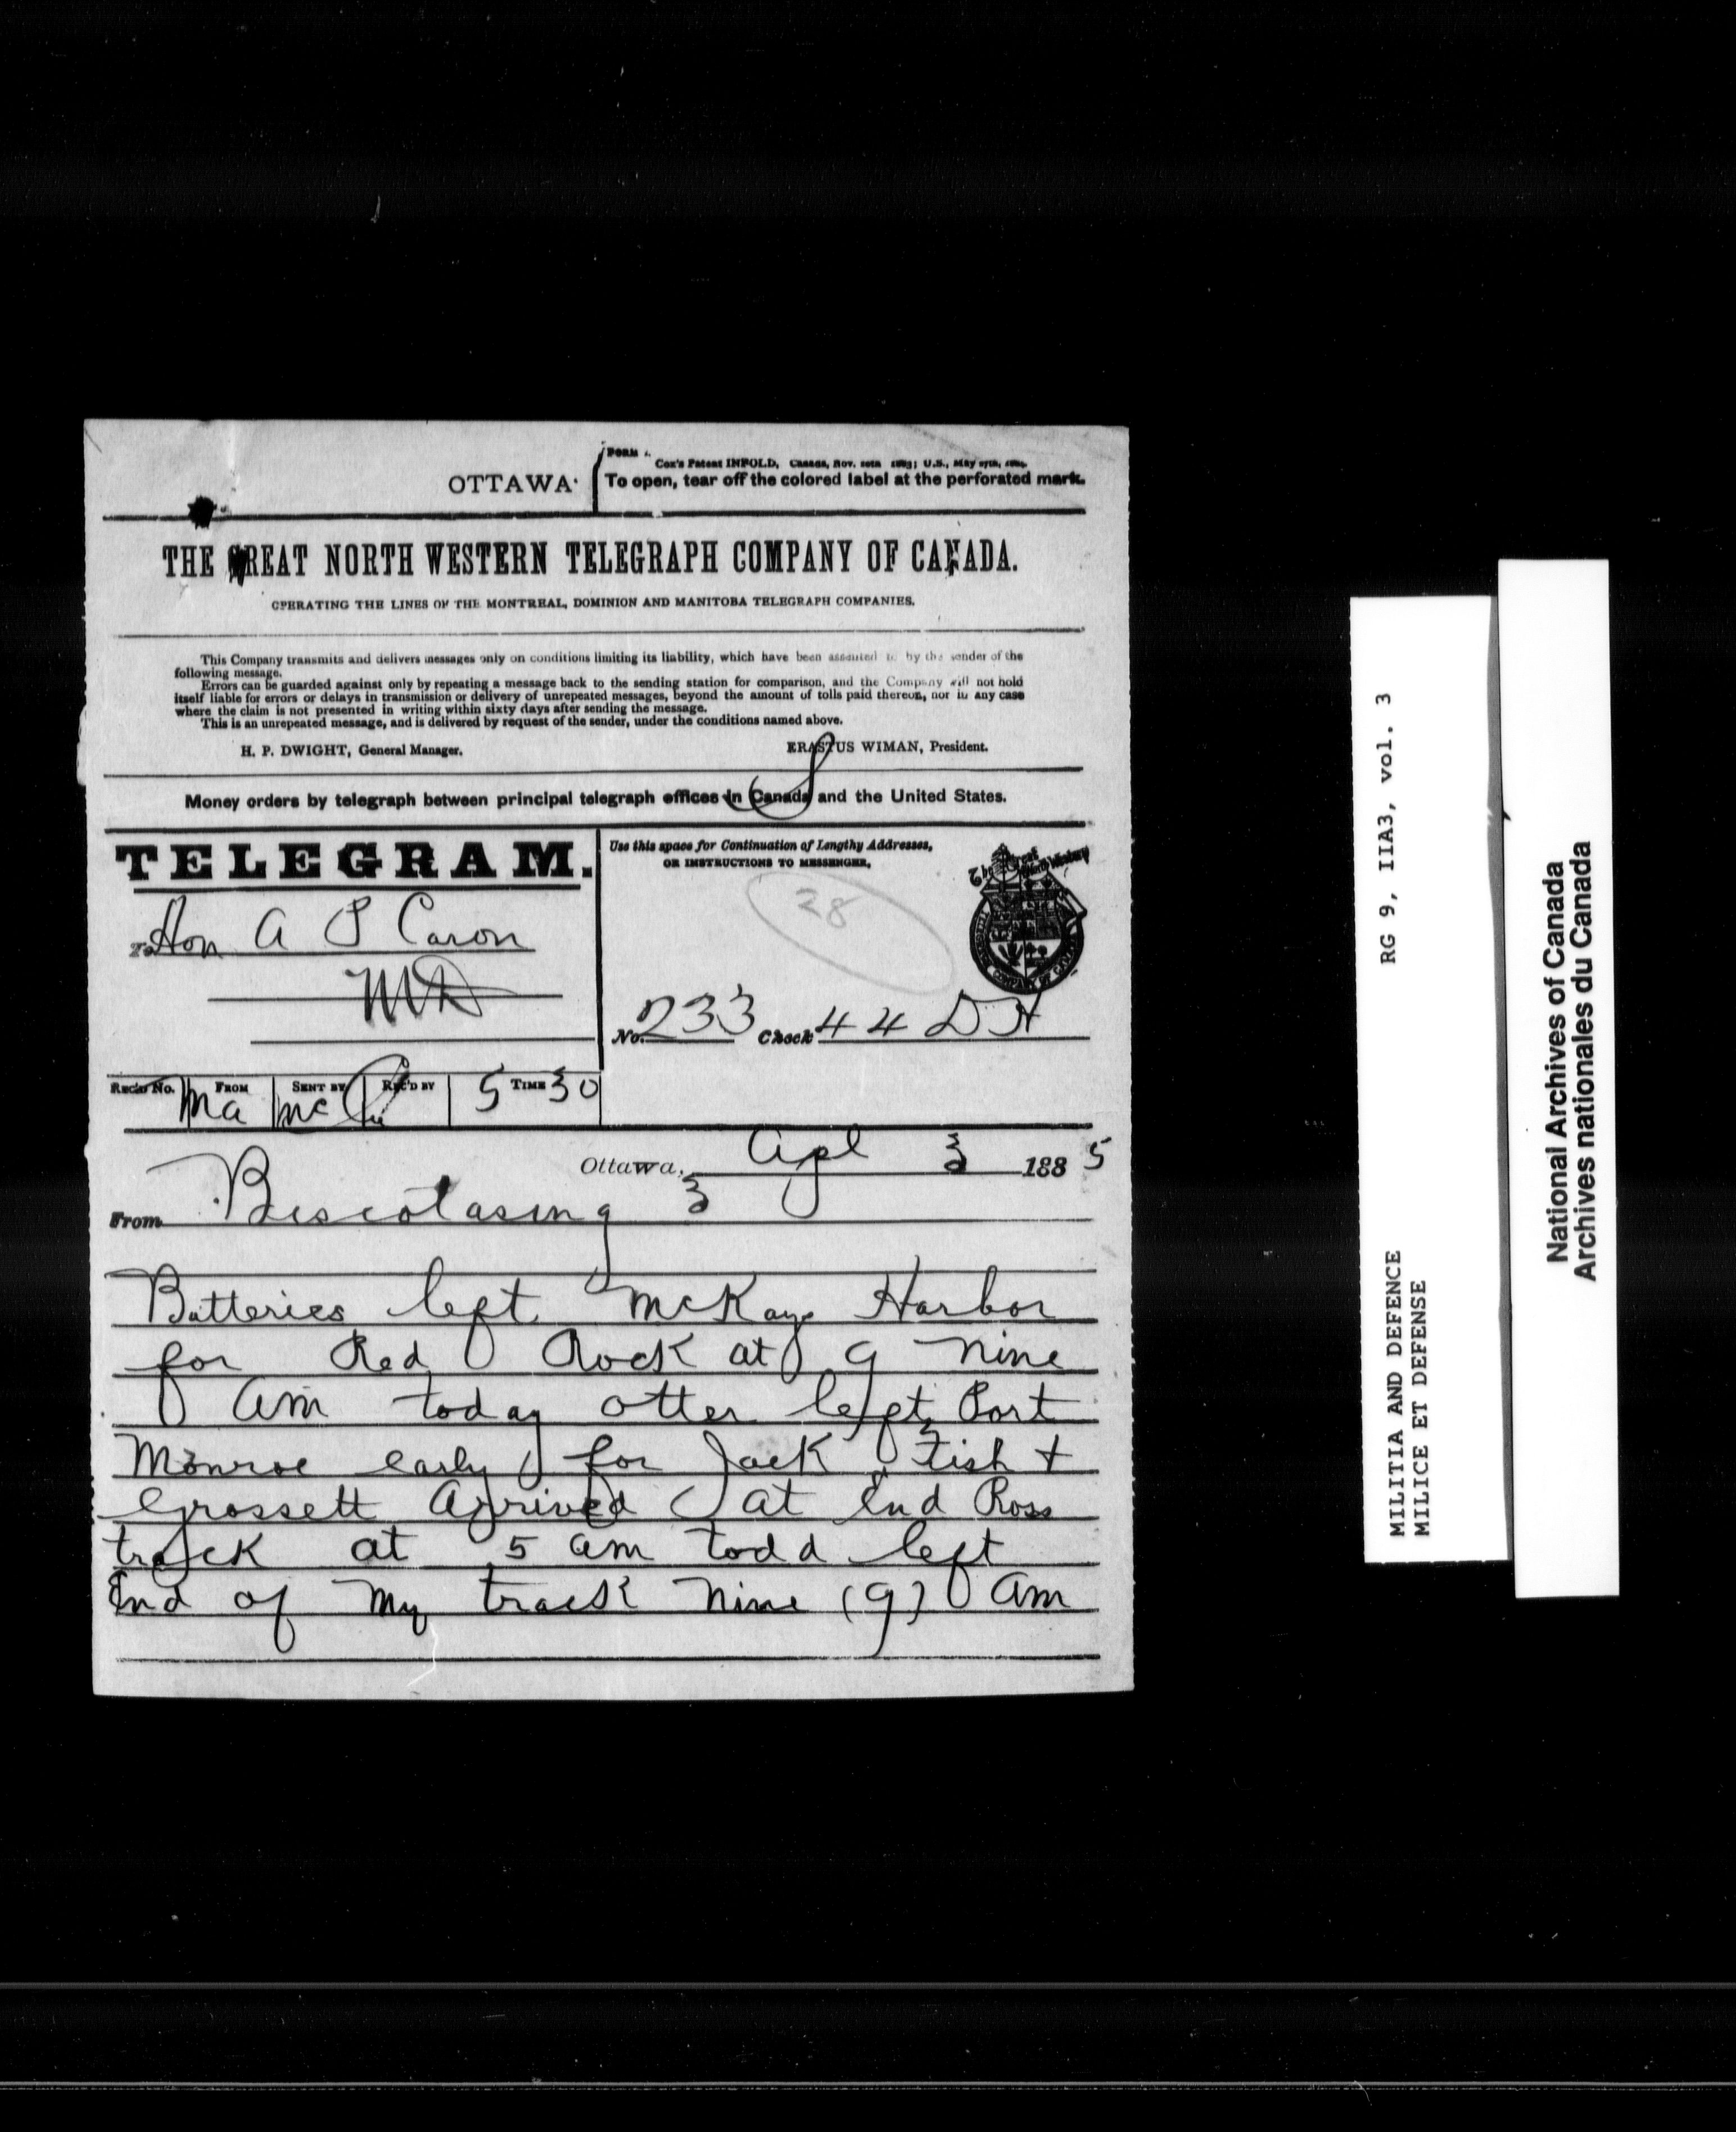 OTTAWA
FORM
Cox's Patent INFOLD, Canada, Nov. 10th 1883; U.S., May 17th,
To open, tear off the colored label at the perforated mark.
THE GREAT NORTH WESTERN TELEGRAPH COMPANY OF CANADA.
OPERATING THE LINES OF THE MONTREAL, DOMINION AND MANITOBA TELEGRAPH COMPANIES.
This Company transmits and delivers messages only on conditions limiting its liability, which have been assented to by the sender of the
following message.
Errors can be guarded against only by repeating a message back to the sending station for comparison, and the Company will not hold
itself liable for errors or delays in transmission or delivery of unrepeated messages, beyond the amount of tolls paid thereon, nor in any case
where the claim is not presented in writing within sixty days after sending the message.
This is an unrepeated message, and is delivered by request of the sender, under the conditions named above.
H. P. DWIGHT, General Manager.
ERASTUS WIMAN, President.
Money orders by telegraph between principal telegraph offices in Canada and the United States.
TELEGRAM.
Use this space for Continuation of Lengthy Addresses,
OR INSTRUCTIONS TO MESSENGER.
28
To Hon A P Caron
No. 233 Check 44 DH
Rec'd No. FROM SENT BY REC'D BY TIME
Ma Mc 5 30
Ottawa, Apl 3 1885
From Biscotasing 3
Batteries left McKays Harbor
for Red Rock at 9 nine
am today Otter left Port
Monroe early for Jack Fish &
Grassett Arrived at End Ross
track at 5 am todd left
End of my track nine (9) am
RG 9, IIA3, vol. 3
MILITIA AND DEFENCE
MILICE ET DEFENSE
National Archives of Canada
Archives nationales du Canada